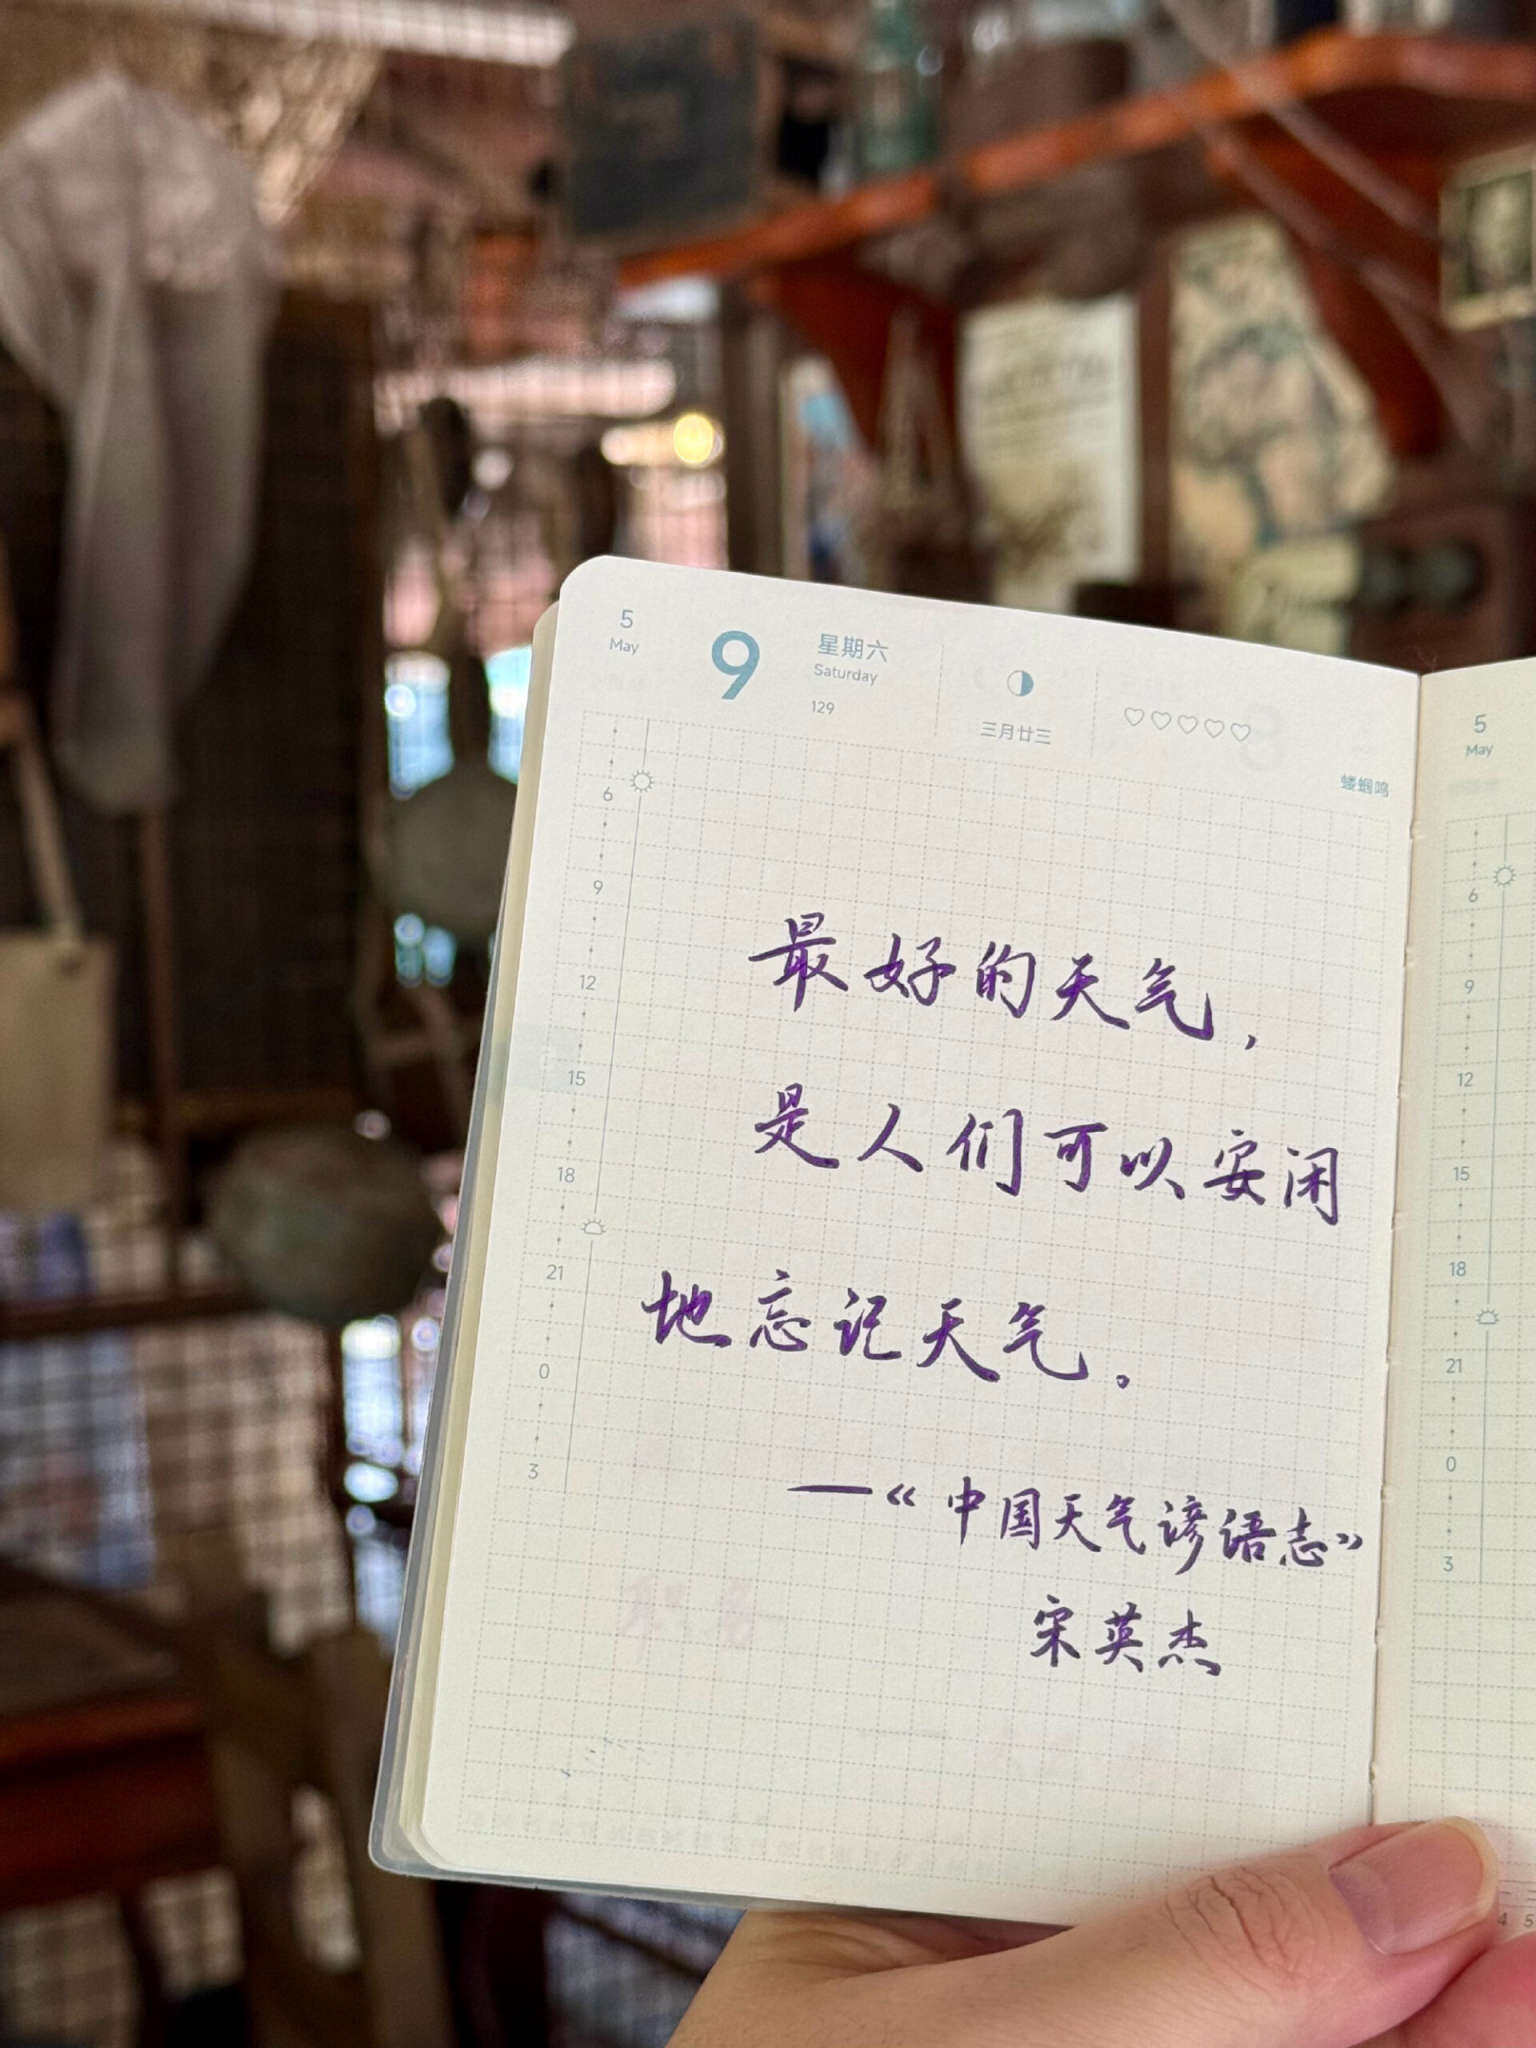 5
May
9
星期六
Saturday
129
三月廿三
蝼蝈鸣
6
9
12
15
18
21
0
3
最好的天气，
是人们可以安闲
地忘记天气。
—《中国天气谚语志》
宋英杰
5
May
6
9
12
15
18
21
0
3
4 5